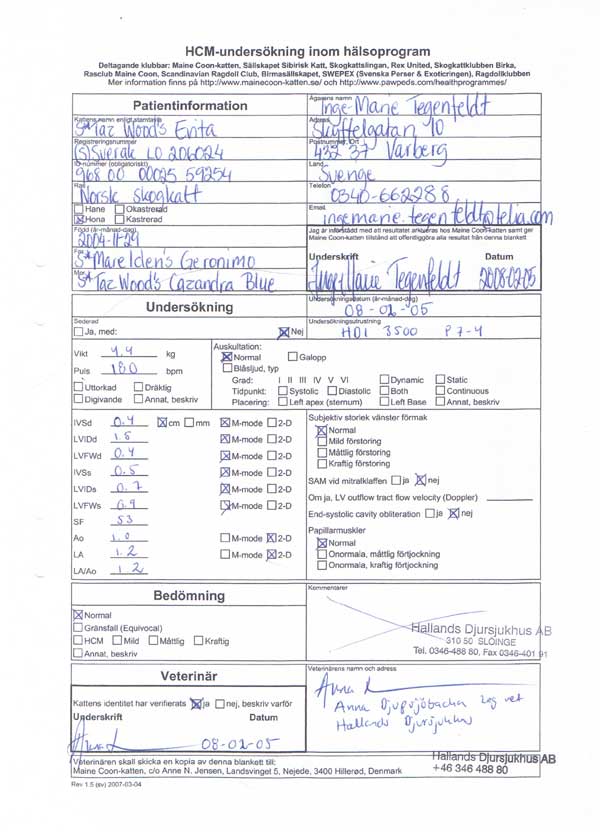 HCM-undersökning inom hälsoprogram
Deltagande klubbar: Maine Coon-katten, Sällskapet Sibirisk Katt, Skogkattslingan, Rex United, Skogkattklubben Birka,
Rasclub Maine Coon, Scandinavian Ragdoll Club, Birmasällskapet, SWEPEX (Svenska Perser & Exoticringen), Ragdollklubben
Mer information finns på http://www.mainecoon-katten.se/ och http://www.pawpeds.com/healthprogrammes/
Patientinformation
Kattens namn enligt stamtavla
S*Taz Wood's Evita
Registreringsnummer
(S)Sverak LO 206024
ID-nummer (obligatoriskt)
968 00 00025 59254
Ras
Norsk skogkatt
Hane Okastrerad
Hona Kastrerad
Född (år-månad-dag)
2004-11-29
Far
S*Mareldens Geronimo
Mor
S*Taz Wood's Cazandra Blue
Ägarens namn
Inge-Marie Tegenfeldt
Adress
Skyttelgatan 10
Postnummer, Ort
432 37 Varberg
Land
Sverige
Telefon
0340-662288
Email
ingemarie.tegenfeldt@telia.com
Jag är införstådd med att resultatet arkiveras hos Maine Coon-katten samt ger
Maine Coon-katten tillstånd att offentliggöra alla resultat från denna blankett
Underskrift Datum
Inge-Marie Tegenfeldt 2008-02-05
Undersökning
Undersökningsdatum (år-månad-dag)
08-02-05
Sederad
Ja, med: Nej
Undersökningsutrustning
HDI 3500 P7-4
Vikt 4,4 kg
Puls 180 bpm
Uttorkad Dräktig
Digivande Annat, beskriv
Auskultation:
Normal Galopp
Blåsljud, typ
Grad: I II III IV V VI Dynamic Static
Tidpunkt: Systolic Diastolic Both Continuous
Placering: Left apex (sternum) Left Base Annat, beskriv
IVSd 0.4 cm mm M-mode 2-D
LVIDd 1.5 M-mode 2-D
LVFWd 0.4 M-mode 2-D
IVSs 0.5 M-mode 2-D
LVIDs 0.7 M-mode 2-D
LVFWs 0.9 M-mode 2-D
SF 53
Ao 1.0 M-mode 2-D
LA 1.2 M-mode 2-D
LA/Ao 1.2
Subjektiv storlek vänster förmak
Normal
Mild förstoring
Måttlig förstoring
Kraftig förstoring
SAM vid mitralklaffen ja nej
Om ja, LV outflow tract flow velocity (Doppler)
End-systolic cavity obliteration ja nej
Papillarmuskler
Normal
Onormala, måttlig förtjockning
Onormala, kraftig förtjockning
Bedömning
Normal
Gränsfall (Equivocal)
HCM Mild Måttlig Kraftig
Annat, beskriv
Kommentarer
Hallands Djursjukhus AB
310 50 SLÖINGE
Tel. 0346-488 80, Fax 0346-401 91
Veterinär
Kattens identitet har verifierats ja nej, beskriv varför
Underskrift Datum
08-02-05
Veterinärens namn och adress
Anna Djupsjöbacka leg vet
Hallands Djursjukhus
Veterinären skall skicka en kopia av denna blankett till:
Maine Coon-katten, c/o Anne N. Jensen, Landsvinget 5, Nejede, 3400 Hillerød, Denmark
Hallands Djursjukhus AB
+46 346 488 80
Rev 1.5 (sv) 2007-03-04